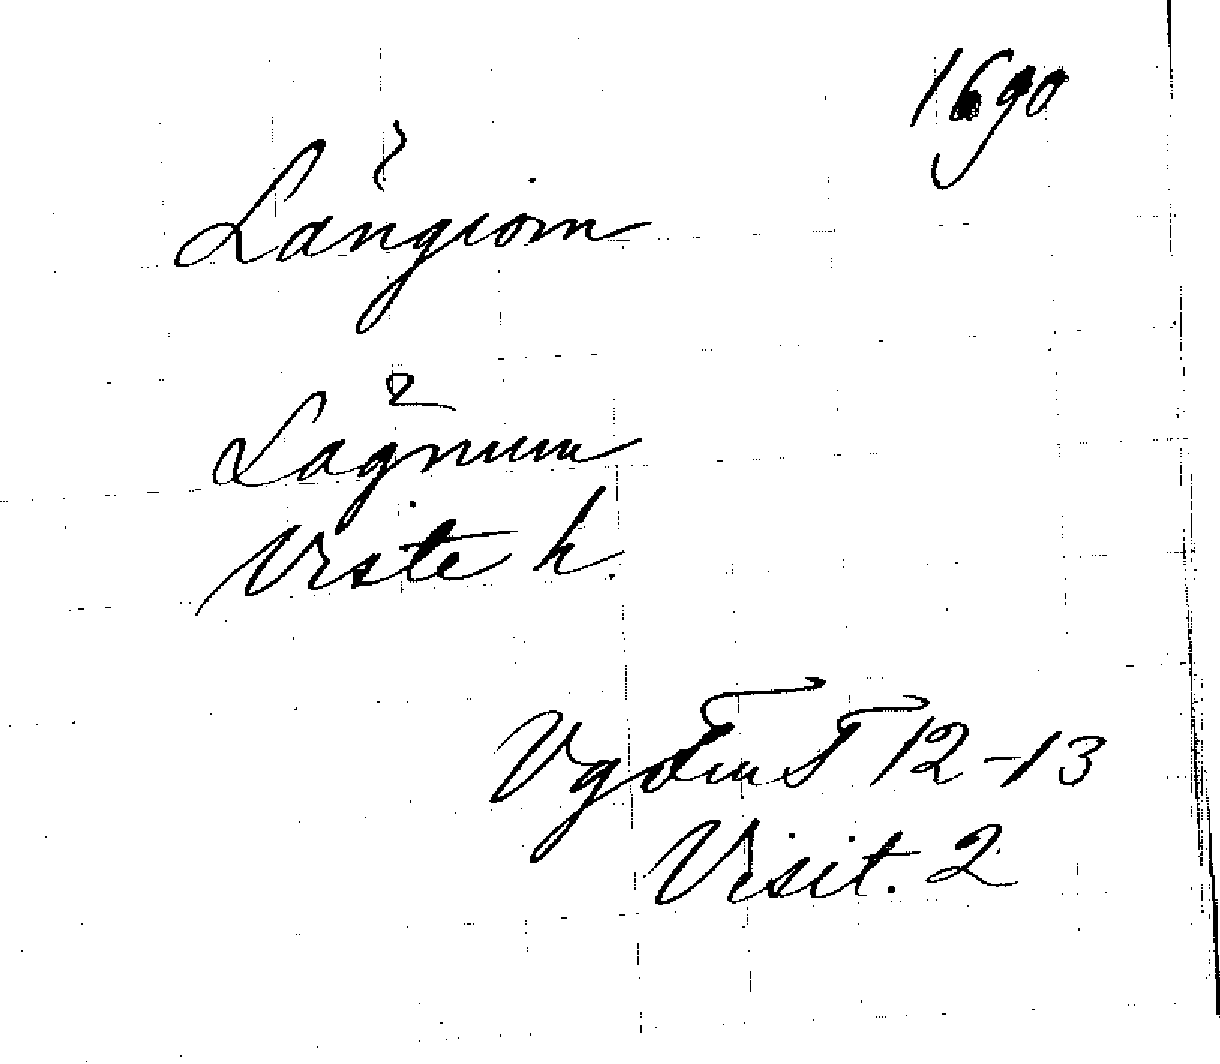 1690
Långiom
Lagnum
Viste h.
12-13
Visit. 2